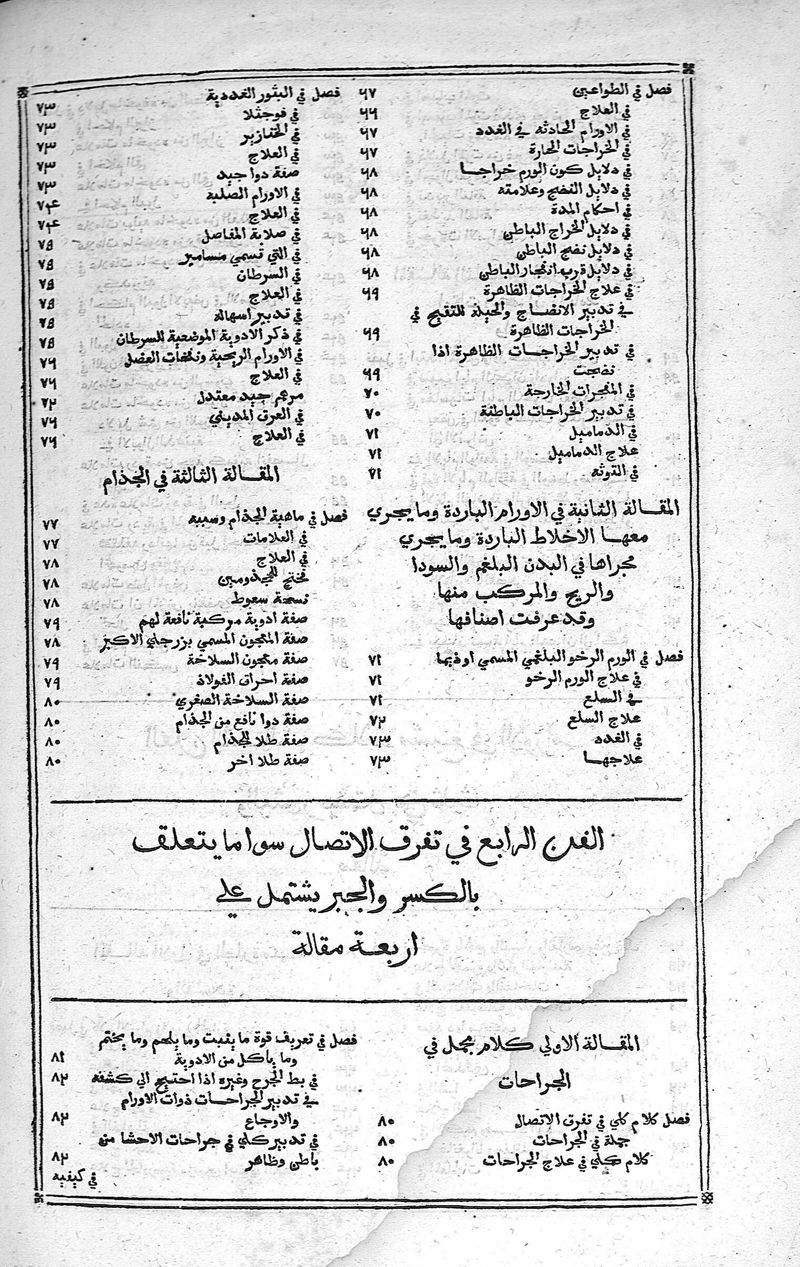 فصل في الطواعين ٦٧
في العلاج ٦٦
في الاورام الحادثه في الغدد ٦٧
في الخراجات الحارة ٦٧
في دلايل كون الورم خراجا ٦٨
في دلايل النضج وعلامته ٦٨
في احكام المدة ٦٨
في دلايل الخراج الباطن ٦٨
في دلايل نضج الباطن ٦٨
في دلايل قرب انفجار الباطن ٦٨
في علاج الخراجات الظاهرة ٦٩
في تدبير الانضاج والحيلة للتقيح في
الخراجات الظاهرة ٦٩
في تدبير الخراجات الظاهرة اذا
نضجت ٦٩
في المنفجرات الخارجة ٧٠
في تدبير الخراجات الباطنة ٧٠
في الدماميل ٧١
علاج الدماميل ٧١
في التوثه ٧١
المقالة الثانية في الاورام الباردة وما يجري
معها الاخلاط الباردة وما يجري
مجراها في البدن البلغم والسودا
والريح والمركب منها
وقد عرفت اصنافها
فصل في الورم الرخو البلغمي المسمي اوذيما ٧١
في علاج الورم الرخو ٧١
في السلع ٧١
علاج السلع ٧٢
في الغدد ٧٣
علاجها ٧٣
فصل في البثور الغددية ٧٣
في فوجثلا ٧٣
في الخنازير ٧٣
في العلاج ٧٣
صفة دوا جيد ٧٣
في الاورام الصلبة ٧٤
في العلاج ٧٤
في صلابة المفاصل ٧٥
في التي تسمي مسامير ٧٥
في السرطان ٧٥
في العلاج ٧٥
في تدبير اسهاله ٧٥
في ذكر الادوية الموضعية للسرطان ٧٥
في الاورام الريحية ونفخات العضل ٧٦
في العلاج ٧٦
مرهم جيد معتدل ٧٢
في العرق المديني ٧٦
في العلاج ٧٦
المقالة الثالثة في الجذام
فصل في ماهية الجذام وسببه ٧٧
في العلامات ٧٧
في العلاج ٧٨
للمجذومين ٧٨
نسخة سعوط ٧٨
صفة ادوية مركبة نافعة لهم ٧٩
صفة المعجون المسمي بزرجلي الاكبر ٧٨
صفة معجون السلاخة ٧٩
صفة احراق الفولاذ ٧٩
صفة السلاخة الصغري ٨٠
صفة دوا نافع من الجذام ٨٠
صفة طلا للجذام ٨٠
صفة طلا اخر ٨٠
الفن الرابع في تفرق الاتصال سوا ما يتعلق
بالكسر والجبر يشتمل علي
اربعة مقالة
المقالة الاولي كلام مجمل في
الجراحات
فصل كلام كلي في تفرق الاتصال ٨٠
جملة في الجراحات ٨٠
كلام كلي في علاج الجراحات ٨٠
فصل في تعريف قوة ما ينبت وما يلحم وما يختم
وما ياكل من الادوية ٨١
في بط الجرح وغيره اذا احتيج الي كشفه ٨٢
في تدبير الجراحات ذوات الاورام
والاوجاع ٨٢
في تدبير كلي في جراحات الاحشا من
باطن وظاهر ٨٢
في كيفيه